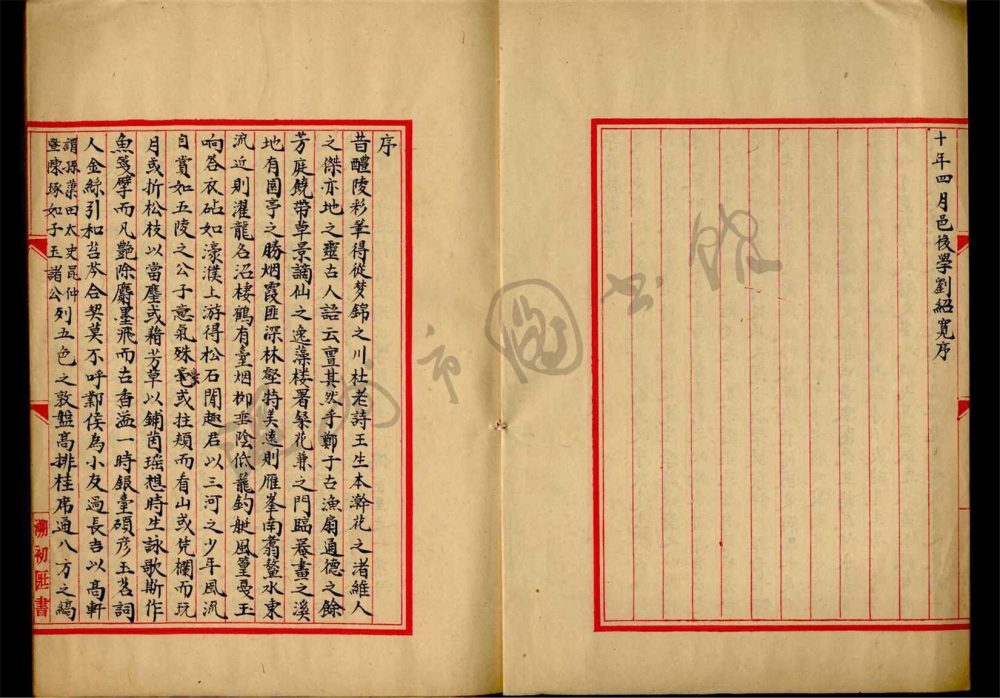 十年四月邑後學劉紹寬序
序
昔醴陵彩筆得從夢錦之川杜老詩王生本澣花之渚維人
之傑亦地之靈古人語云亶其然乎鄭子古漁扇通德之餘
芳庭饒帶草景謫仙之逸藻樓署粲花兼之門臨罨畫之溪
地有園亭之勝烟霞匪深林壑特美遠則雁峯南翥鰲水東
流近則濯龍名沼棲鶴有臺烟柳垂陰低籠釣艇風篁戛玉
响答衣砧如濠濮上游得松石閒趣君以三河之少年風流
自賞如五陵之公子意氣殊豪或拄頰而看山或凭欄而玩
月或折松枝以當麈或藉芳草以鋪茵瑶想時生詠歌斯作
魚箋擘而凡艷除麝墨飛而古香溢一時銀臺碩彥玉茗詞
人金絲引和苔岑合契莫不呼鄭侯為小友過長吉以高軒
謂孫蕖田太史昆仲
曁陳琢如子玉諸公列五色之敦盤高排桂席通八方之縞
溫州市圖書館